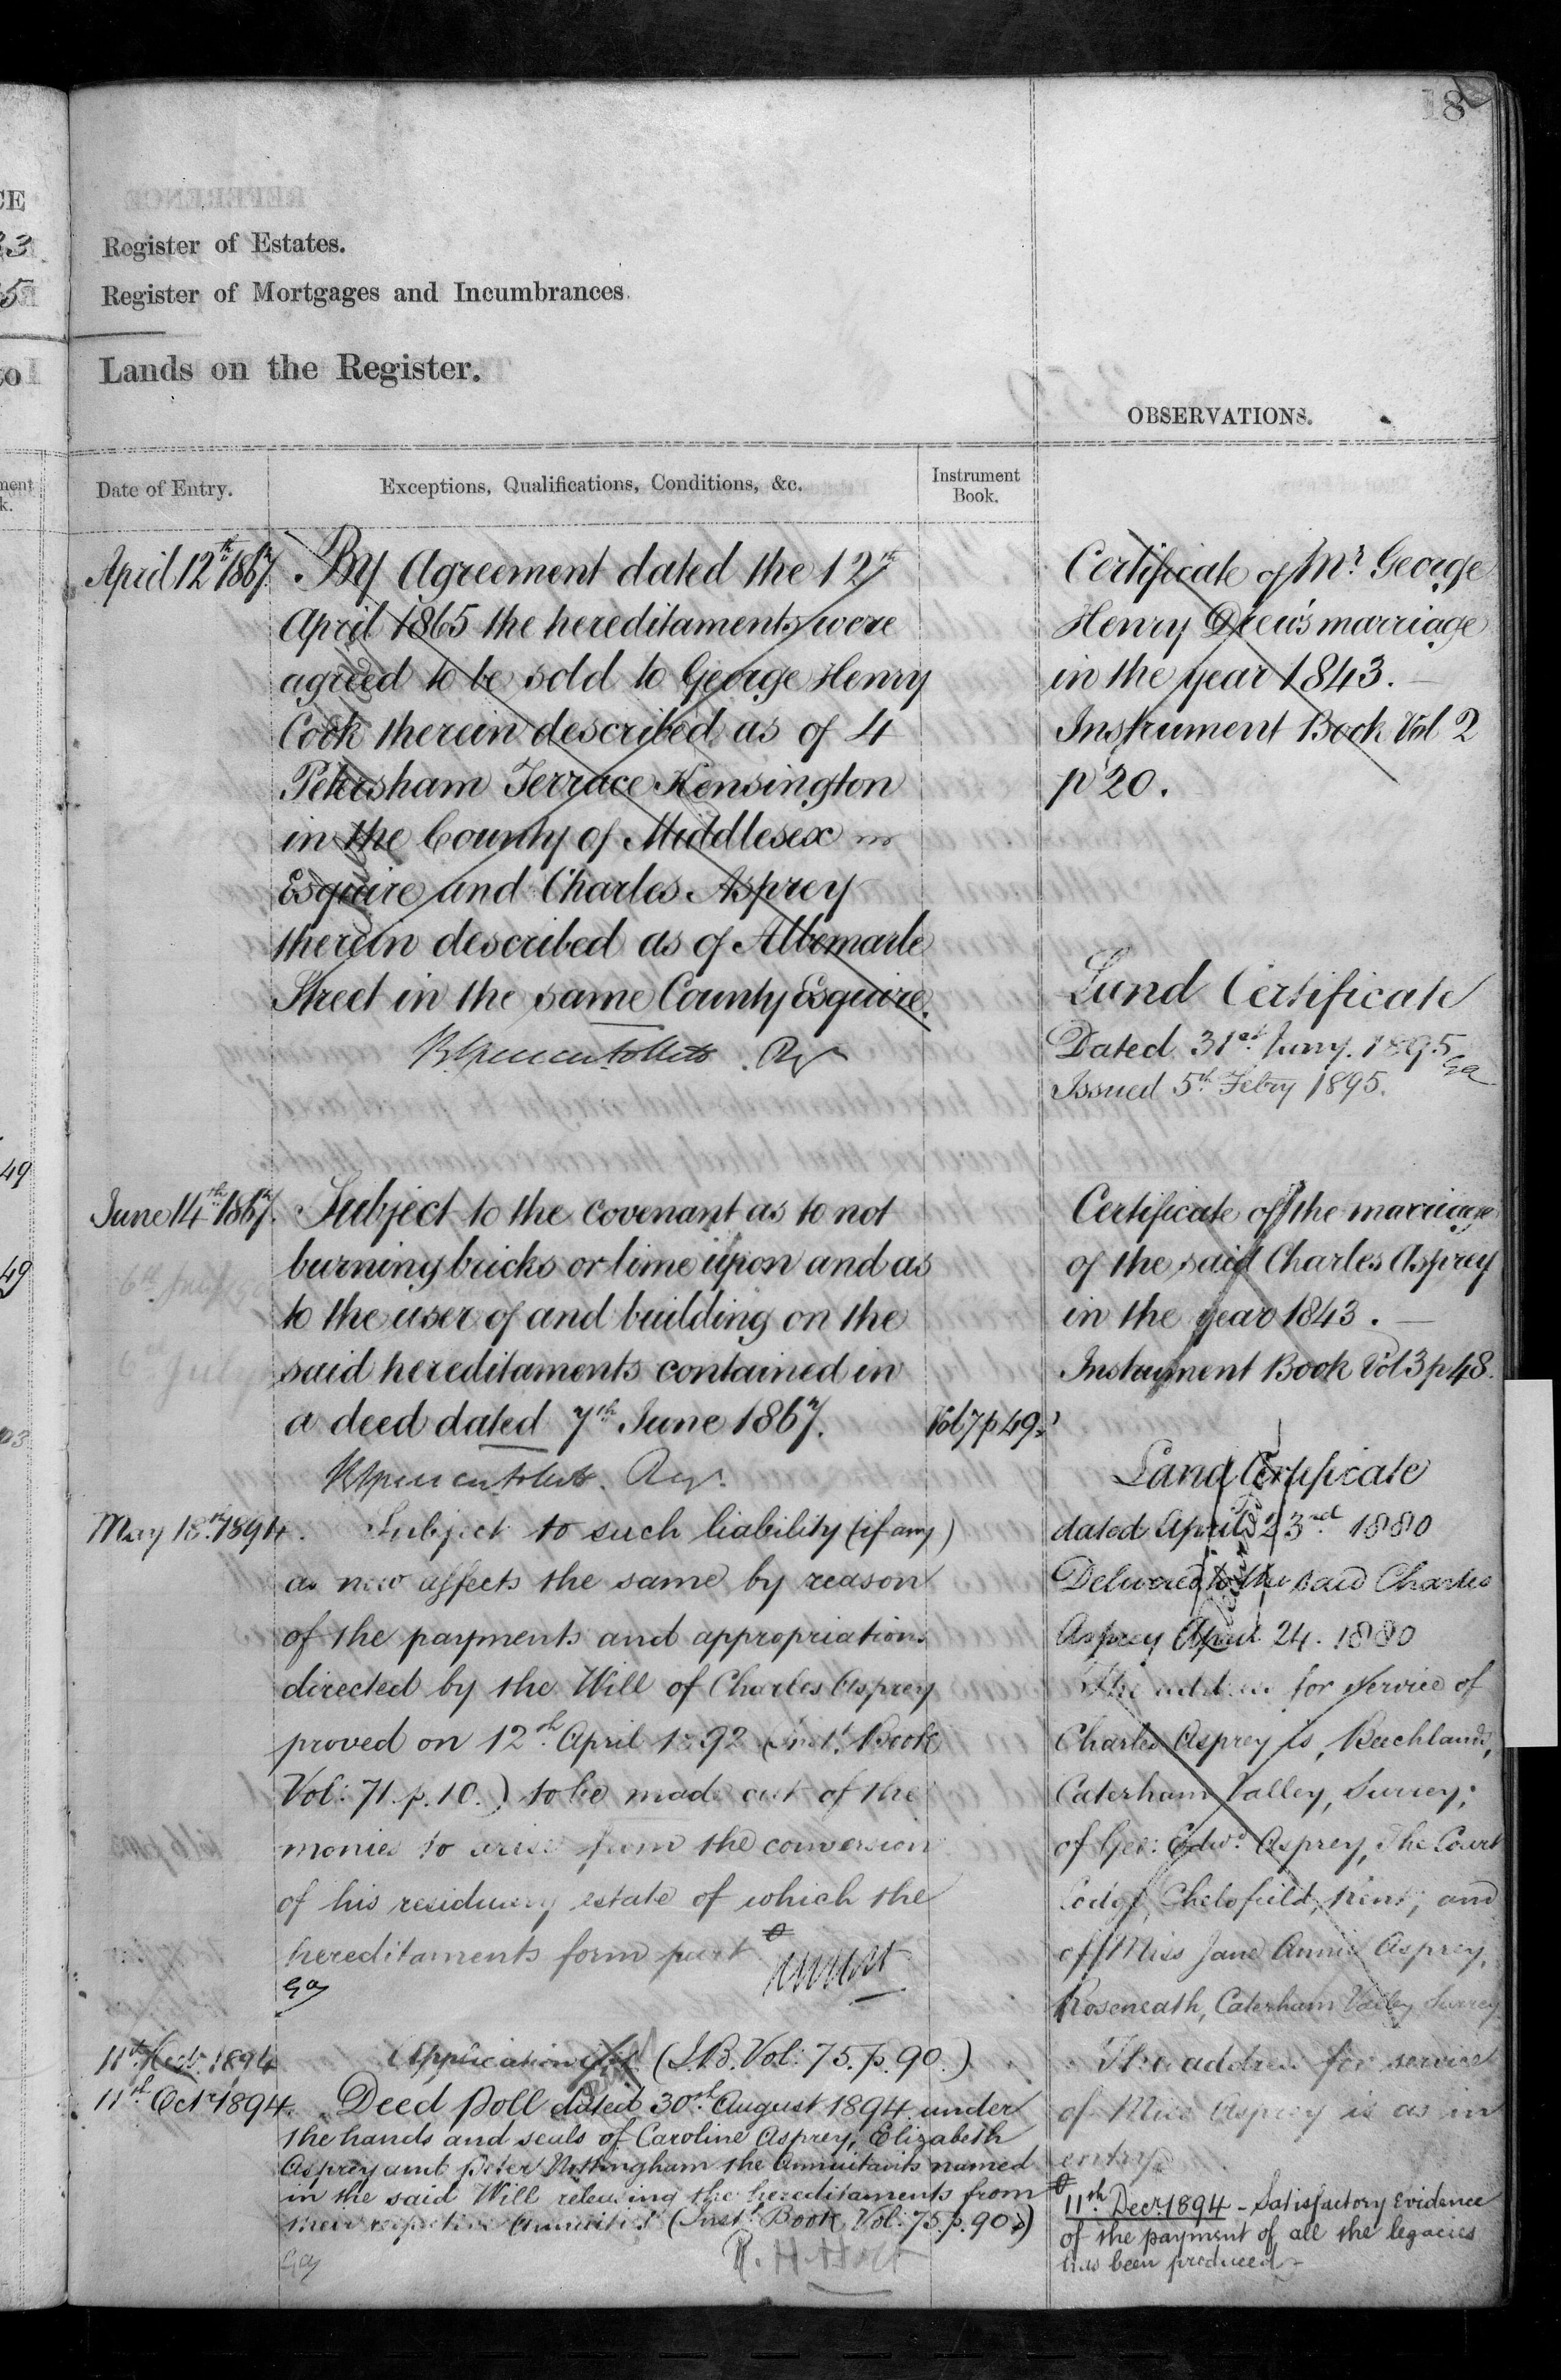 18
Register of Estates.
Register of Mortgages and Incumbrances.
Lands on the Register.
OBSERVATIONS.
Date of Entry.
Exceptions, Qualifications, Conditions, &c.
Instrument
Book.
April 12th 1867.
By Agreement dated the 12th
April 1865 the hereditaments were
agreed to be sold to George Henry
Cook therein described as of 4
Petersham Terrace Kensington
in the County of Middlesex
Esquire and Charles Asprey
therein described as of Albemarle
Street in the same County Esquire.
June 14th 1867.
Subject to the covenant as to not
burning bricks or lime upon and as
to the user of and building on the
said hereditaments contained in
a deed dated 7th June 1867.
Vol 7 p 49.
May 18th 1894.
Subject to such liability (if any)
as now affects the same by reason
of the payments and appropriations
directed by the Will of Charles Asprey
proved on 12th April 1892 (Inst. Book
Vol: 71. p. 10.) to be made out of the
monies to arise from the conversion
of his residuary estate of which the
hereditaments form part
11th 1894
Application (I.B. Vol: 75. p. 90.)
11th Octr 1894.
Deed Poll dated 30th August 1894 under
the hands and seals of Caroline Asprey, Elizabeth
Asprey and Peter Nottingham the Annuitants named
in the said Will releasing the hereditaments from
their respective Annuities (Inst. Book Vol: 75. p. 90.)
Certificate of Mr George
Henry Drew's marriage
in the year 1843.
Instrument Book Vol 2
p 20.
Land Certificate
Dated 31st Jany. 1895
Issued 5th Febry 1895.
Certificate of the marriage
of the said Charles Asprey
in the year 1843.
Instrument Book Vol 3 p 48.
Land Certificate
dated April 23rd 1880
Delivered to the said Charles
Asprey April 24. 1880
The address for service of
Charles Asprey is, Beechlands,
Caterham Valley, Surrey;
of Geo: Edwd. Asprey, The Court
Lodge, Chelsfield, Kent; and
of Miss Jane Annie Asprey,
Roseneath, Caterham Valley Surrey
The address for service
of Miss Asprey is as in
entry
11th Decr. 1894 - Satisfactory Evidence
of the payment of all the legacies
has been produced -